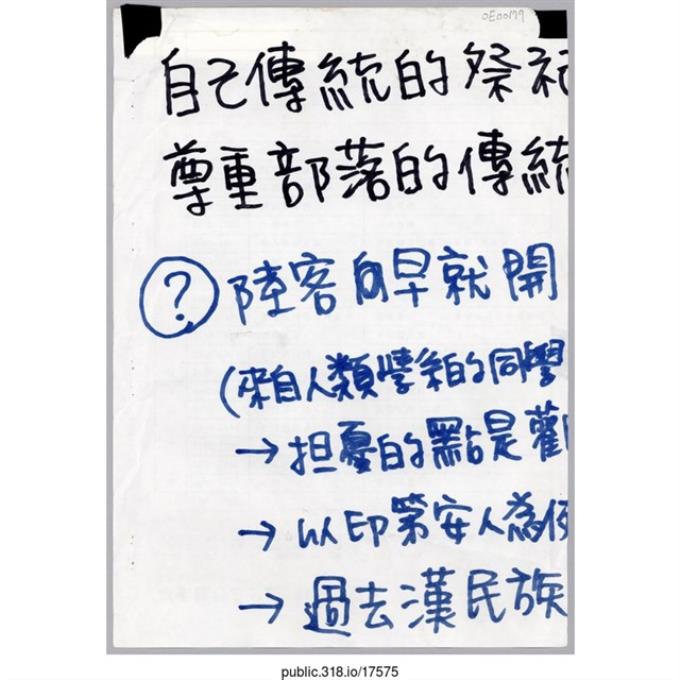 0E00179
自己傳統的祭祀
尊重部落的傳統
? 陸客自早就開
(來自人類學系的同學
→ 担憂的點是觀
→ 以印第安人為例
→ 過去漢民族
public.318.io/17575